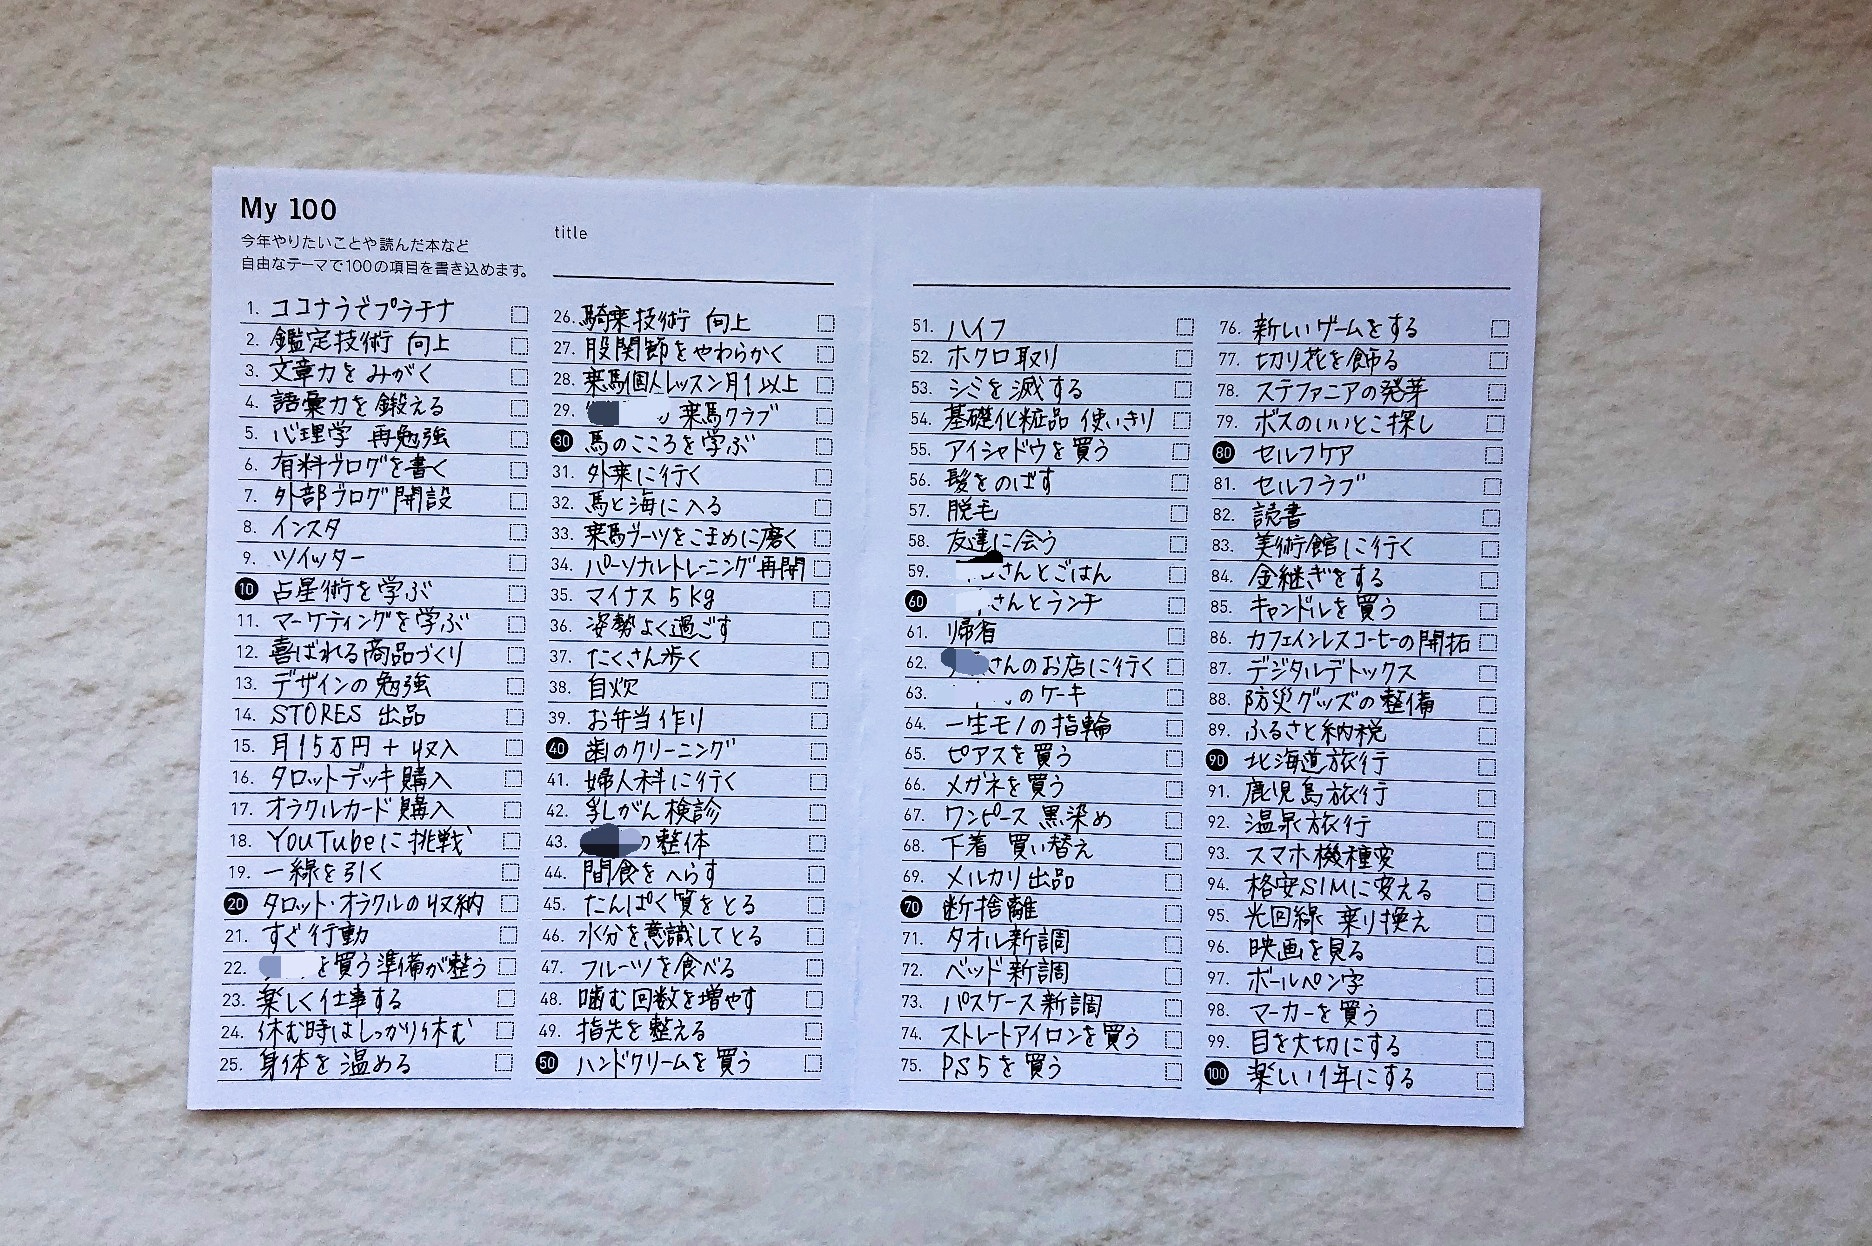 My 100
今年やりたいことや読んだ本など
自由なテーマで100の項目を書き込めます。
title
1. ココナラでプラチナ
2. 鑑定技術 向上
3. 文章力をみがく
4. 語彙力を鍛える
5. 心理学 再勉強
6. 有料ブログを書く
7. 外部ブログ開設
8. インスタ
9. ツイッター
10 占星術を学ぶ
11. マーケティングを学ぶ
12. 喜ばれる商品づくり
13. デザインの勉強
14. STORES 出品
15. 月15万円+収入
16. タロットデッキ購入
17. オラクルカード購入
18. YouTubeに挑戦
19. 一線を引く
20 タロット・オラクルの収納
21. すぐ行動
22. を買う準備が整う
23. 楽しく仕事する
24. 休む時はしっかり休む
25. 身体を温める
26. 騎乗技術 向上
27. 股関節をやわらかく
28. 乗馬個人レッスン月1以上
29. 乗馬クラブ
30 馬のこころを学ぶ
31. 外乗に行く
32. 馬と海に入る
33. 乗馬ブーツをこまめに磨く
34. パーソナルトレーニング再開
35. マイナス5kg
36. 姿勢よく過ごす
37. たくさん歩く
38. 自炊
39. お弁当作り
40 歯のクリーニング
41. 婦人科に行く
42. 乳がん検診
43. の整体
44. 間食をへらす
45. たんぱく質をとる
46. 水分を意識してとる
47. フルーツを食べる
48. 噛む回数を増やす
49. 指先を整える
50 ハンドクリームを買う
51. ハイフ
52. ホクロ取り
53. シミを滅する
54. 基礎化粧品 使いきり
55. アイシャドウを買う
56. 髪をのばす
57. 脱毛
58. 友達に会う
59. さんとごはん
60 さんとランチ
61. 帰省
62. さんのお店に行く
63. のケーキ
64. 一生モノの指輪
65. ピアスを買う
66. メガネを買う
67. ワンピース黒染め
68. 下着 買い替え
69. メルカリ出品
70 断捨離
71. タオル新調
72. ベッド新調
73. パスケース新調
74. ストレートアイロンを買う
75. PS5を買う
76. 新しいゲームをする
77. 切り花を飾る
78. ステファニアの発芽
79. ボスのいいとこ探し
80 セルフケア
81. セルフラブ
82. 読書
83. 美術館に行く
84. 金継ぎをする
85. キャンドルを買う
86. カフェインレスコーヒーの開拓
87. デジタルデトックス
88. 防災グッズの整備
89. ふるさと納税
90 北海道旅行
91. 鹿児島旅行
92. 温泉旅行
93. スマホ機種変
94. 格安SIMに変える
95. 光回線 乗り換え
96. 映画を見る
97. ボールペン字
98. マーカーを買う
99. 目を大切にする
100 楽しい1年にする